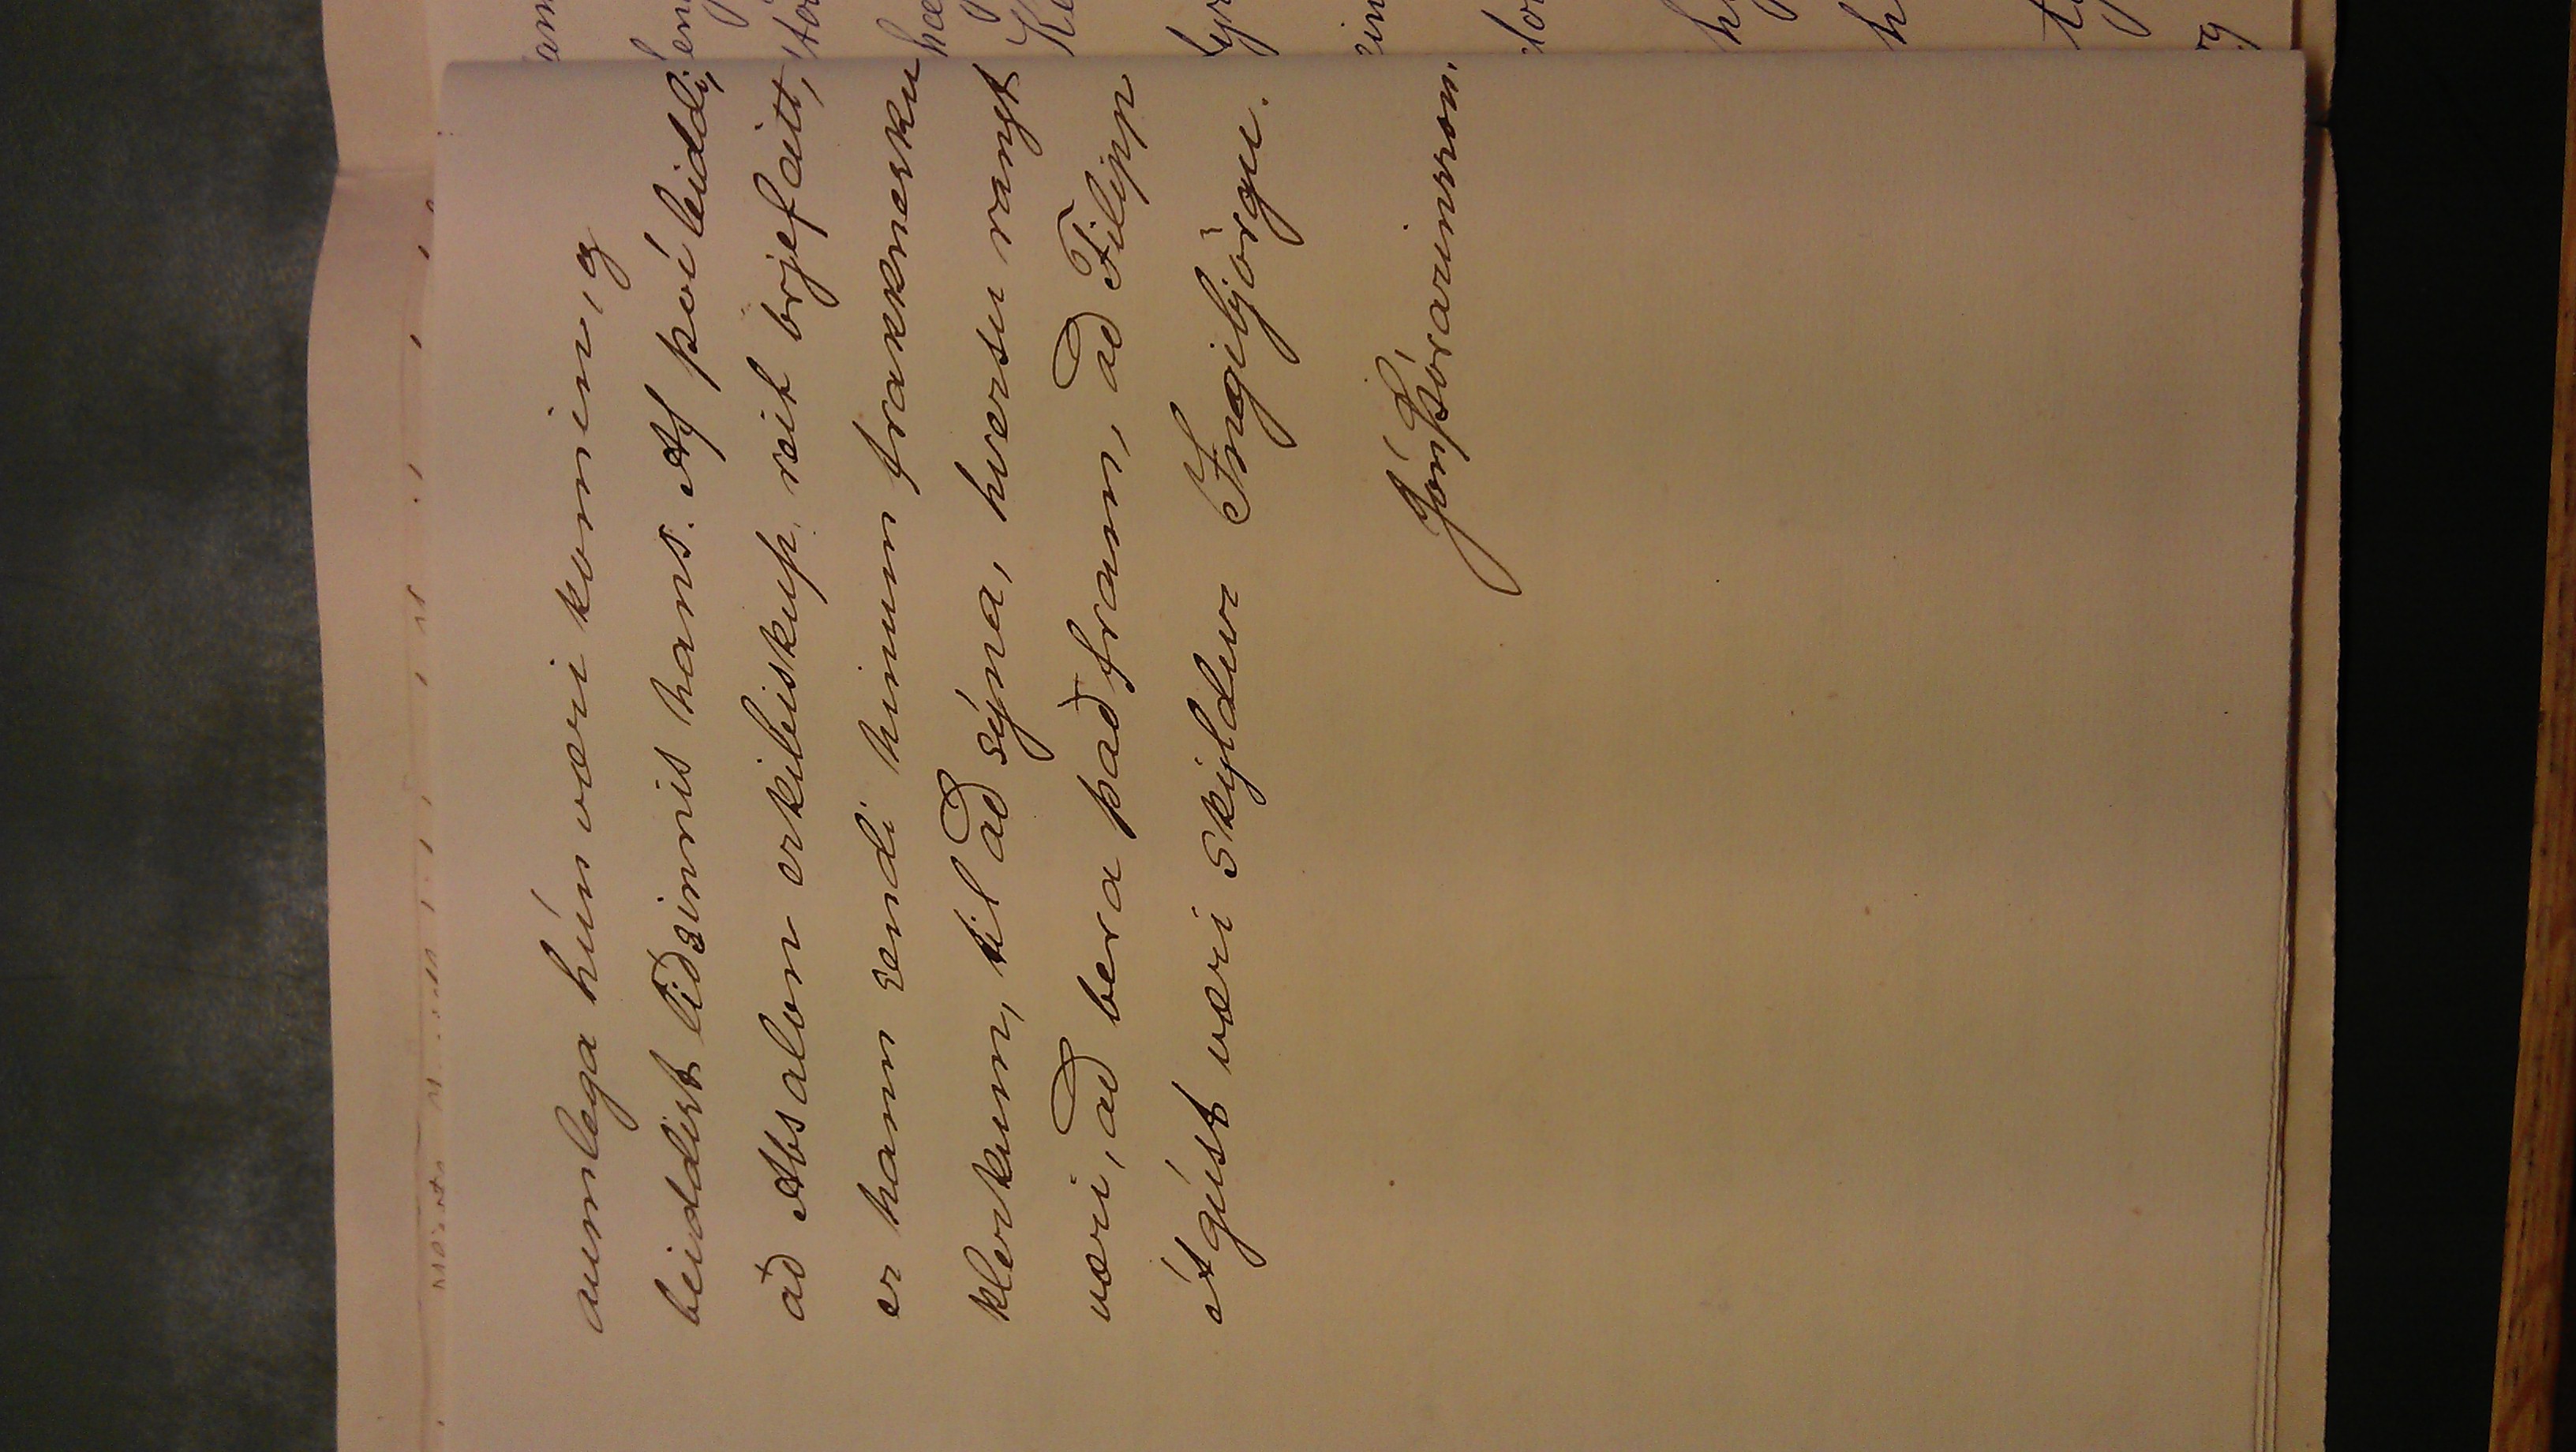 aumlega hún væri komin, og
beiddist liðsinnis hans. Af því leiddi,
að Absalon erkibiskup reit brjef eitt,
er hann sendi hinum frakknesku
klerkum, til að sýna, hversu rangt
væri, að bera það fram, að Filipp
Ágúst væri skyldur Ingibjörgu.
Jón Þórarinsson.